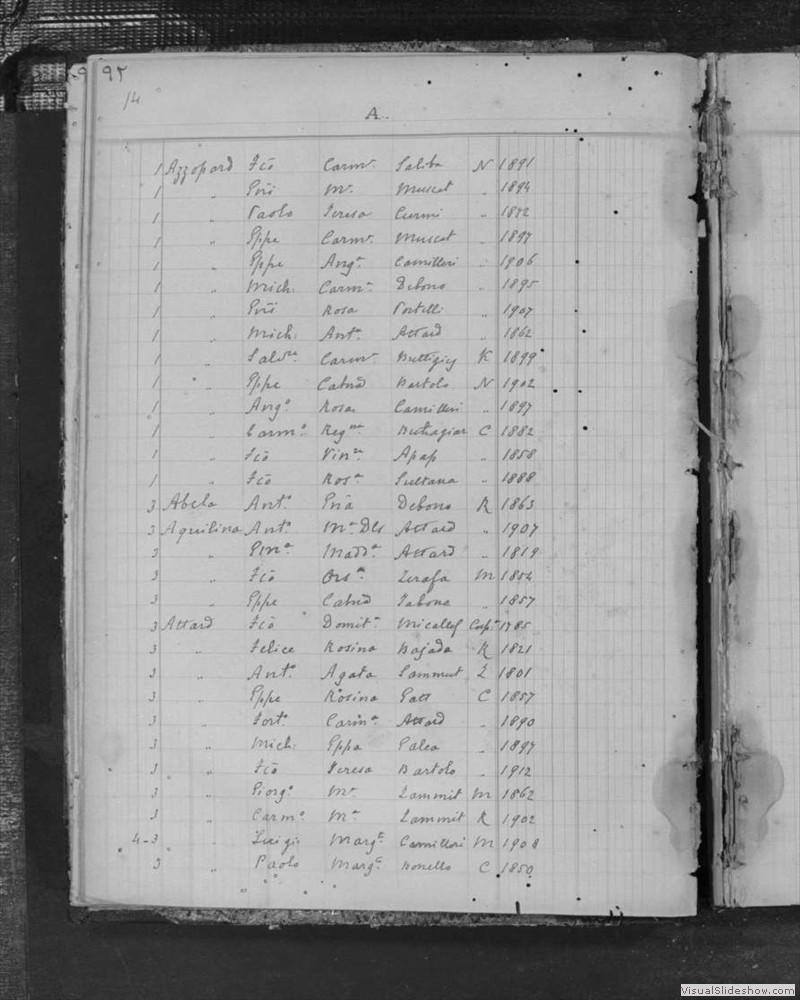 95
14
A.
1 Azzopard Fco Carmᵃ Saliba N 1891
1 " Gni Mᵃ Muscat " 1894
1 " Paolo Teresa Curmi " 1872
1 " Gppe Carmᵃ Muscat " 1897
1 " Gppe Angᵃ Camilleri " 1906
1 " Mich. Carmᵃ Debono " 1895
1 " Gni Rosa Portelli " 1907
1 " Mich. Antᵃ Attard " 1862
1 " Salvʳᵉ Carmᵃ Buttigieg K 1899
1 " Gppe Catnᵃ Bartolo N 1902
1 " Angᵒ Rosa Camilleri " 1897
1 " Carmᵒ Regⁿᵃ Buttagiar C 1882
1 " Fco Vinᶻᵃ Apap " 1858
1 " Fco Rosᵃ Sultana " 1888
3 Abela Antᵒ Gnia Debono R 1863
3 Aquilina Antᵒ Mᵃ Dls Attard " 1907
3 " Gmᵃ Maddᵃ Attard " 1819
3 " Fco Orsᵃ Zerafa M 1854
3 " Gppe Catnᵃ Tabone " 1857
3 Attard Fco Domitᵃ Micallef Casp. 1785
3 " Felice Rosina Bajada R 1821
3 " Antᵒ Agata Sammut Z 1801
3 " Gppe Rosina Gatt C 1857
3 " Fortᵒ Carmᵃ Attard " 1890
3 " Mich. Gppa Galea " 1897
3 " Fco Teresa Bartolo " 1912
3 " Giorgᵒ Mᵃ Zammit M 1862
3 " Carmᵒ Mᵃ Zammit R 1902
4-3 " Luigi Margᵗᵃ Camilleri M 1908
3 " Paolo Margᵗᵃ Bonello C 1850
VisualSlideshow.com